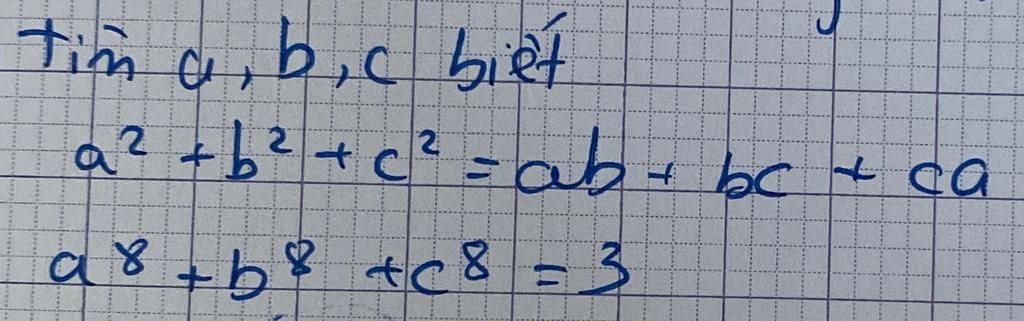 tìm a, b, c biết
a² + b² + c² = ab + bc + ca
a⁸ + b⁸ + c⁸ = 3